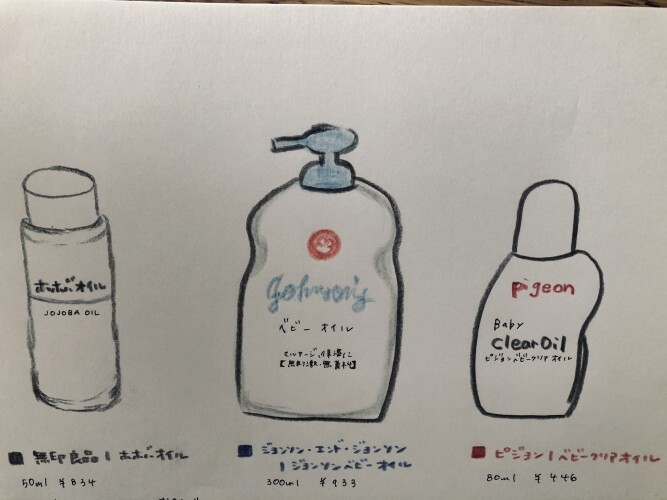 ホホバオイル
JOJOBA OIL
Johnson's
ベビー オイル
マッサージ、保湿に
【無刺激・無着料】
pigeon
Baby
clear Oil
ピジョン ベビークリアオイル
無印良品 | ホホバオイル
50ml ¥834
ジョンソン・エンド・ジョンソン
| ジョンソンベビーオイル
300ml ¥933
ピジョン | ベビークリアオイル
80ml ¥446